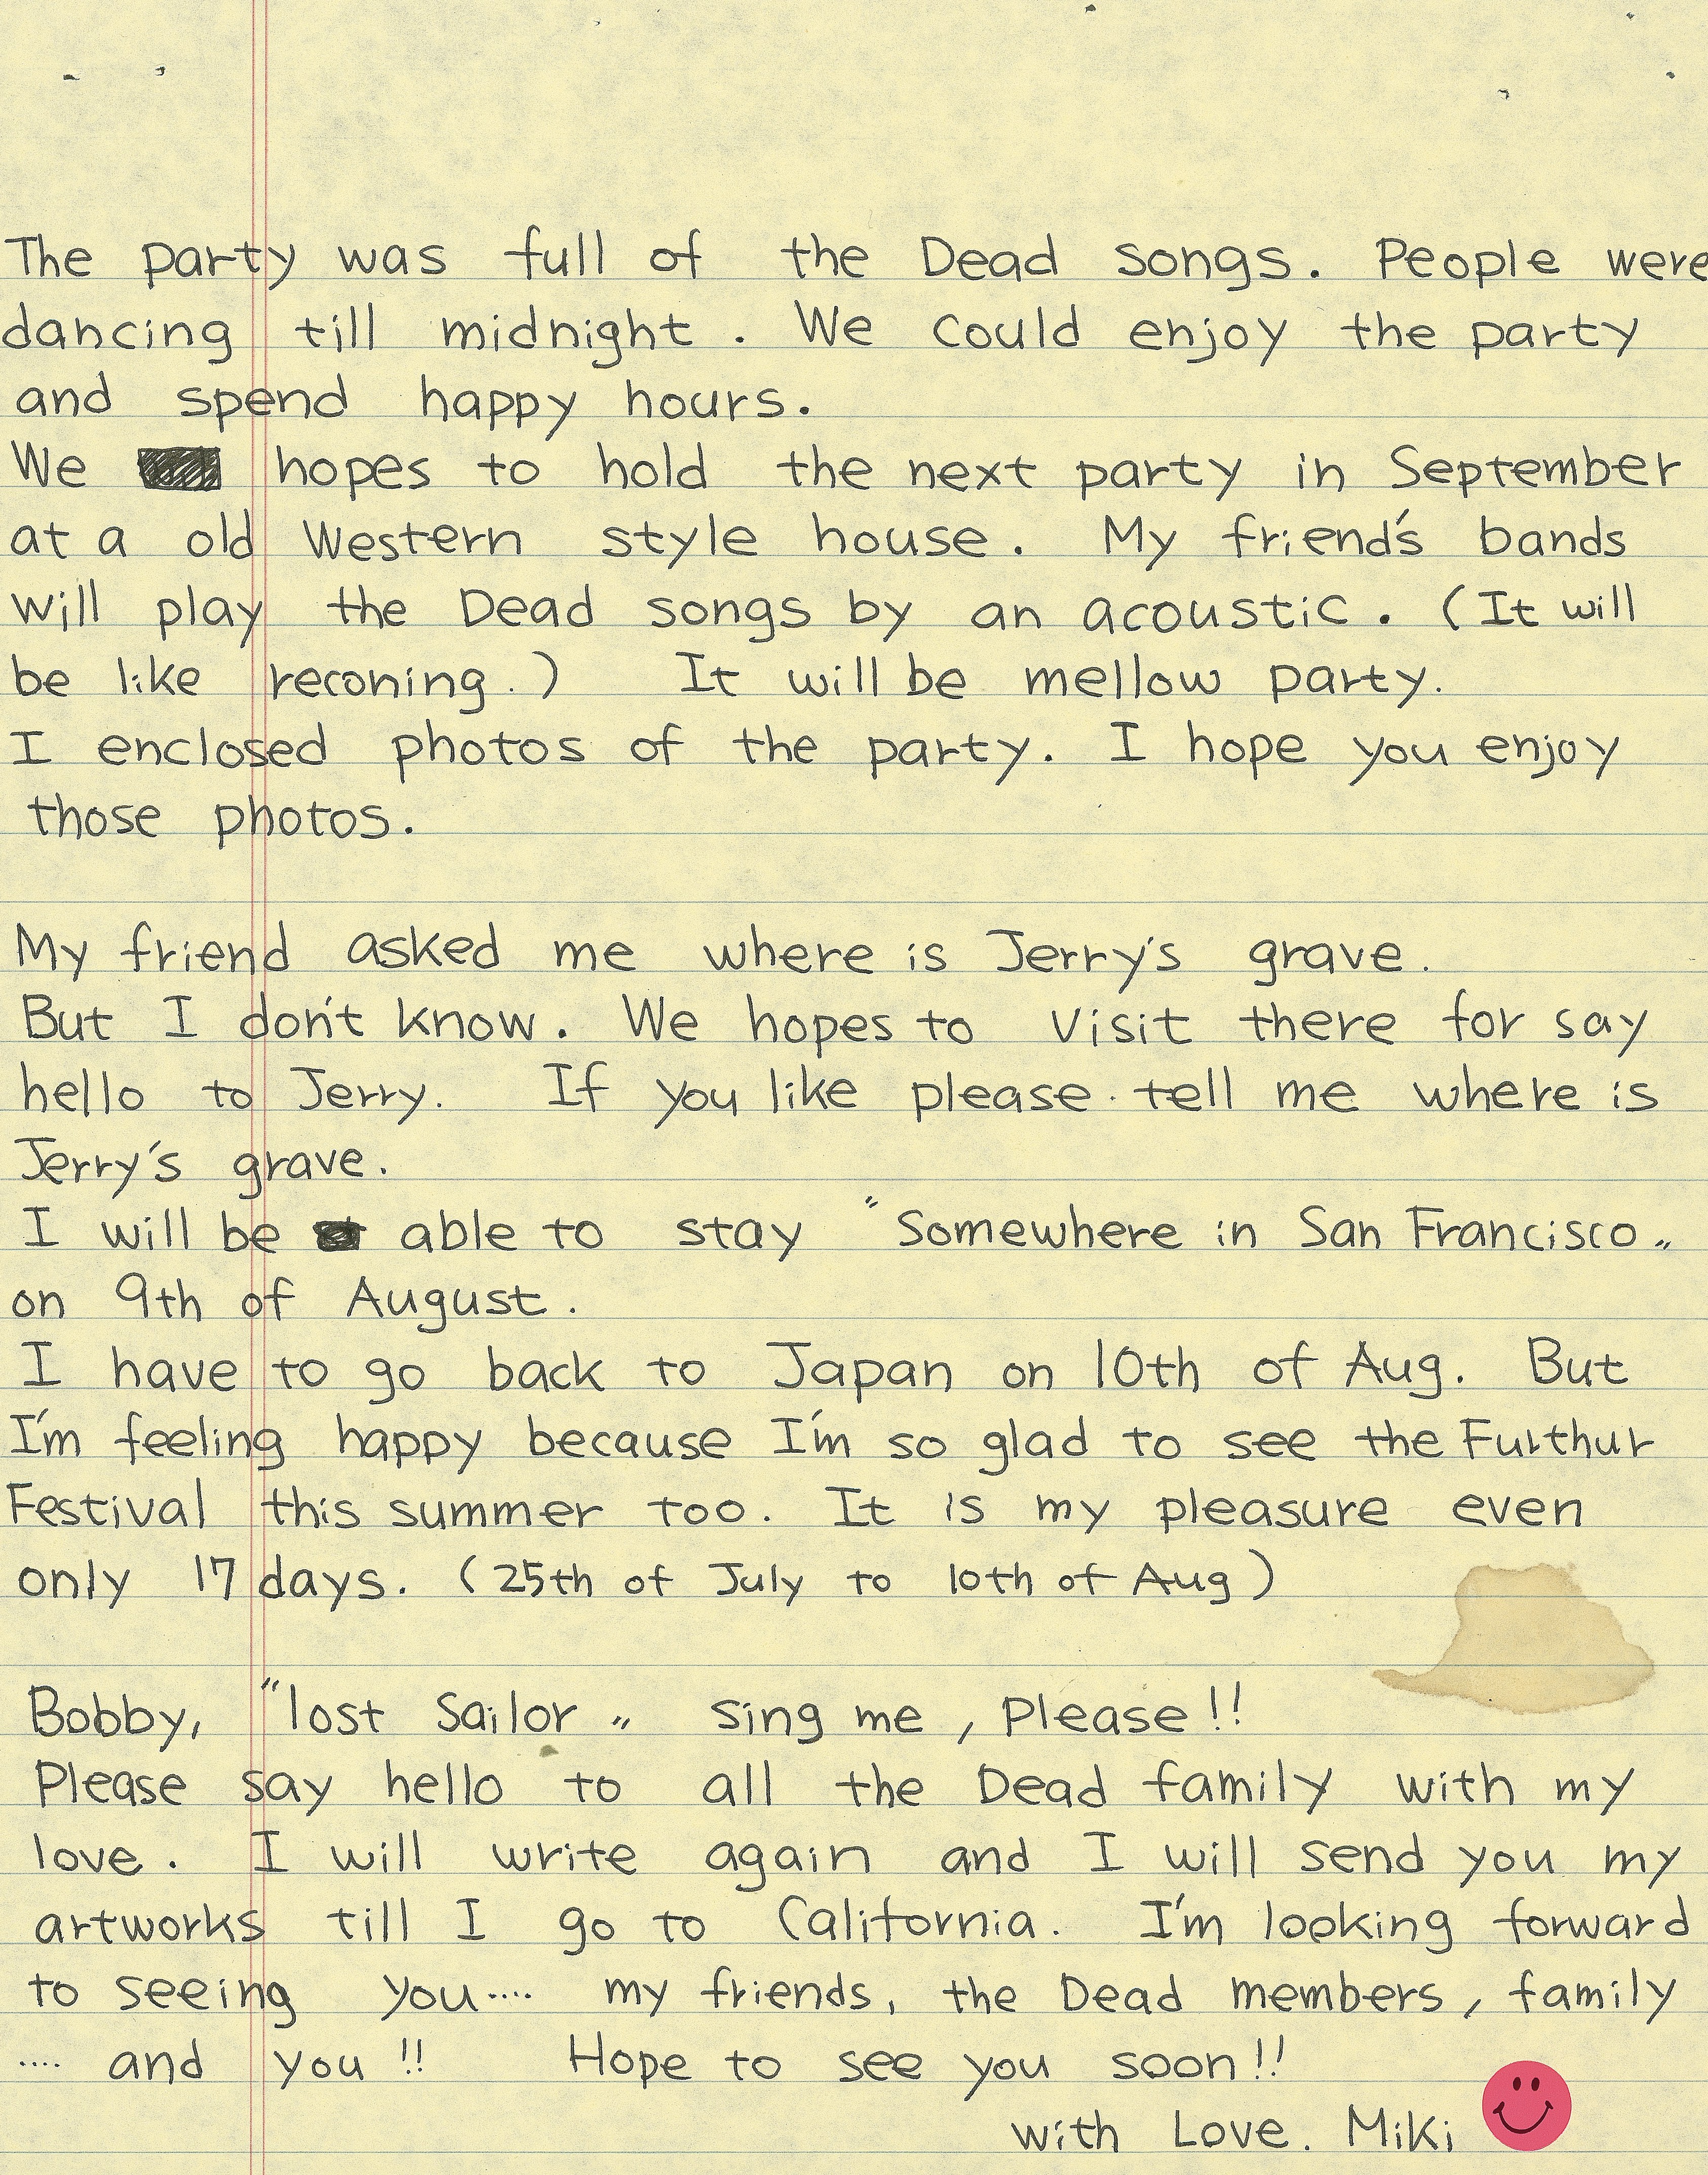 The party was full of the Dead songs. People were
dancing till midnight. We could enjoy the party
and spend happy hours.
We hopes to hold the next party in September
at a old Western style house. My friend's bands
will play the Dead songs by an acoustic. (It will
be like reconing.) It will be mellow party.
I enclosed photos of the party. I hope you enjoy
those photos.
My friend asked me where is Jerry's grave.
But I don't know. We hopes to visit there for say
hello to Jerry. If you like please tell me where is
Jerry's grave.
I will be able to stay "Somewhere in San Francisco„
on 9th of August.
I have to go back to Japan on 10th of Aug. But
I'm feeling happy because I'm so glad to see the Furthur
Festival this summer too. It is my pleasure even
only 17 days. (25th of July to 10th of Aug)
Bobby, "lost Sailor„ sing me, please!!
Please say hello to all the Dead family with my
love. I will write again and I will send you my
artworks till I go to California. I'm looking forward
to seeing you.... my friends, the Dead members, family
.... and you!! Hope to see you soon!!
with Love. Miki